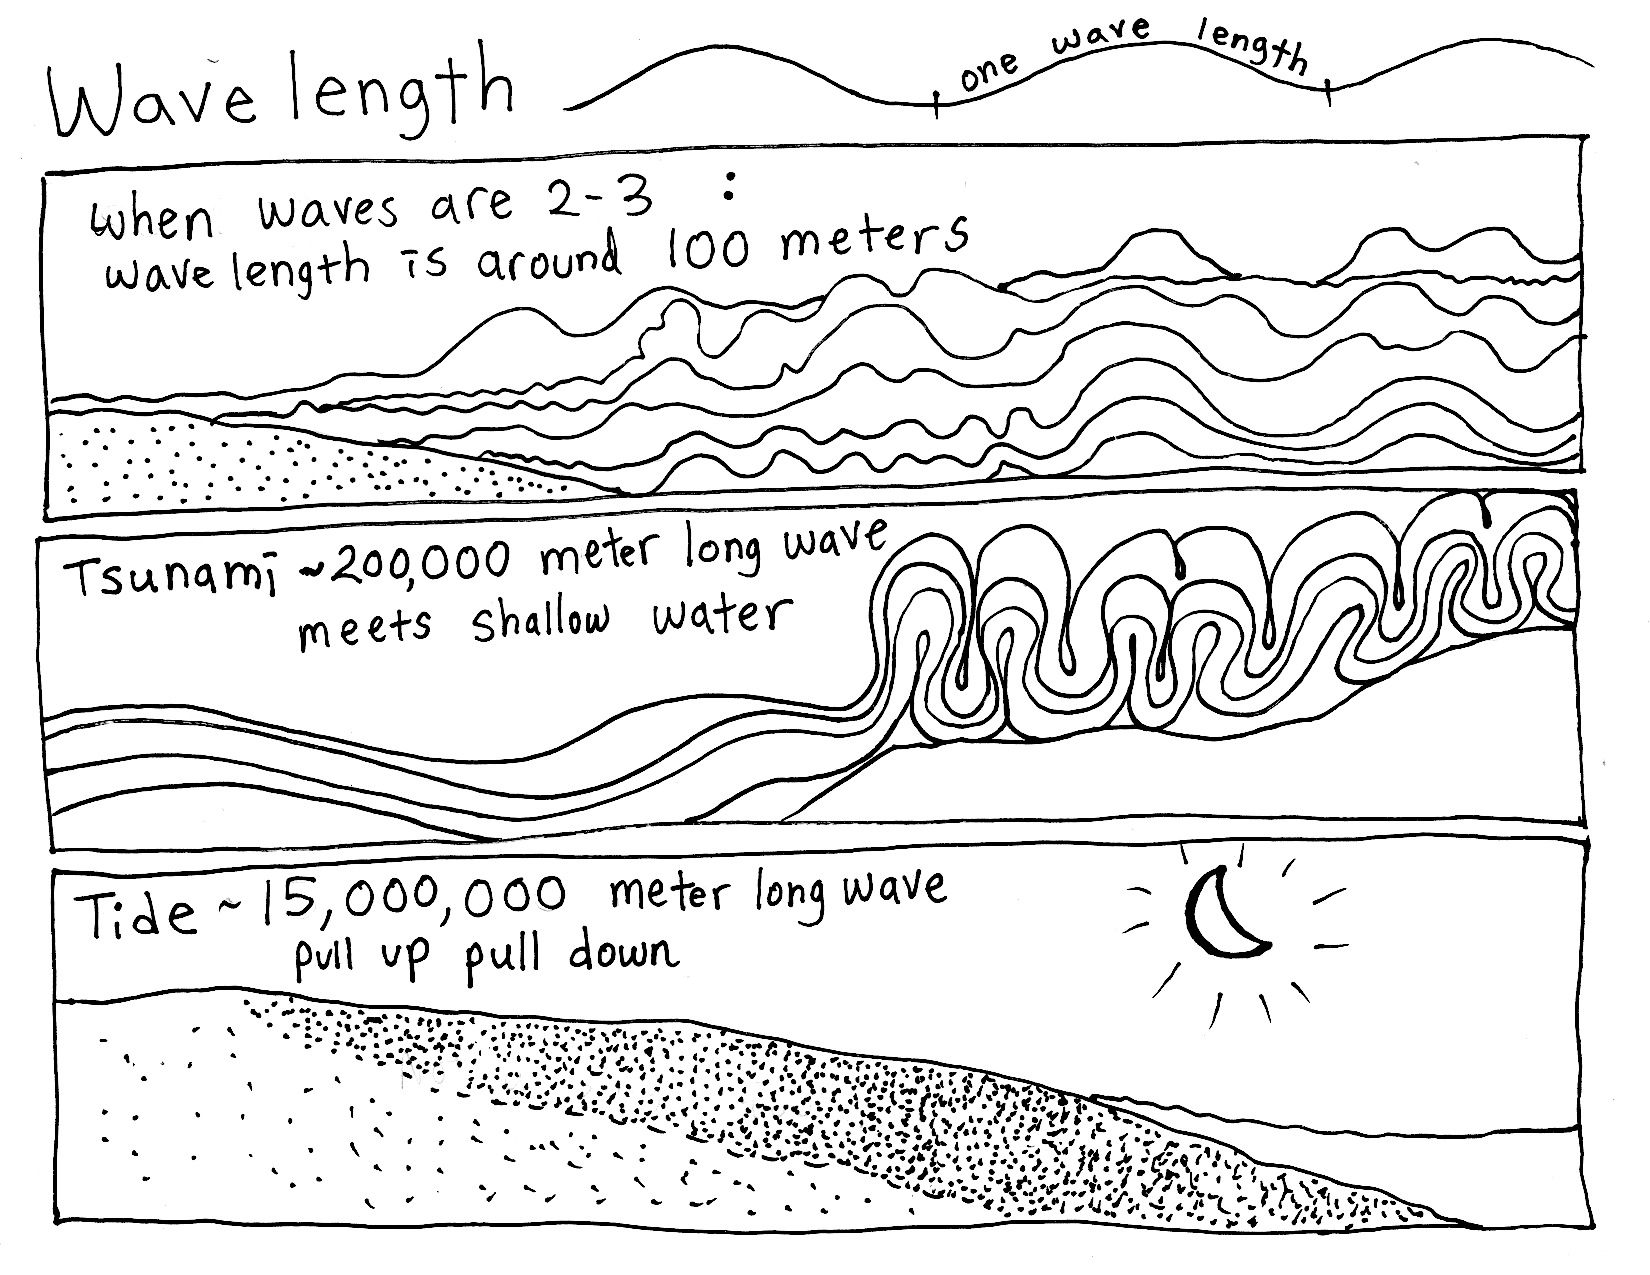 Wave length
one wave length
when waves are 2-3 :
wave length is around 100 meters
Tsunami ~200,000 meter long wave
meets shallow water
Tide ~ 15,000,000 meter long wave
pull up pull down